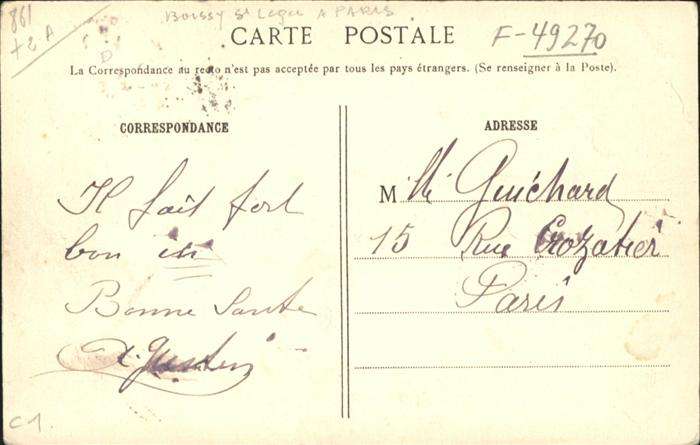 861
+2A
BOISSY St Leger A PARIS
CARTE POSTALE
F-49270
La Correspondance au recto n'est pas acceptée par tous les pays étrangers. (Se renseigner à la Poste).
CORRESPONDANCE
Il fait fort
bon ici
Bonne Sante
ADRESSE
M lle Guichard
15 Rue Crozatier
Paris
C1.